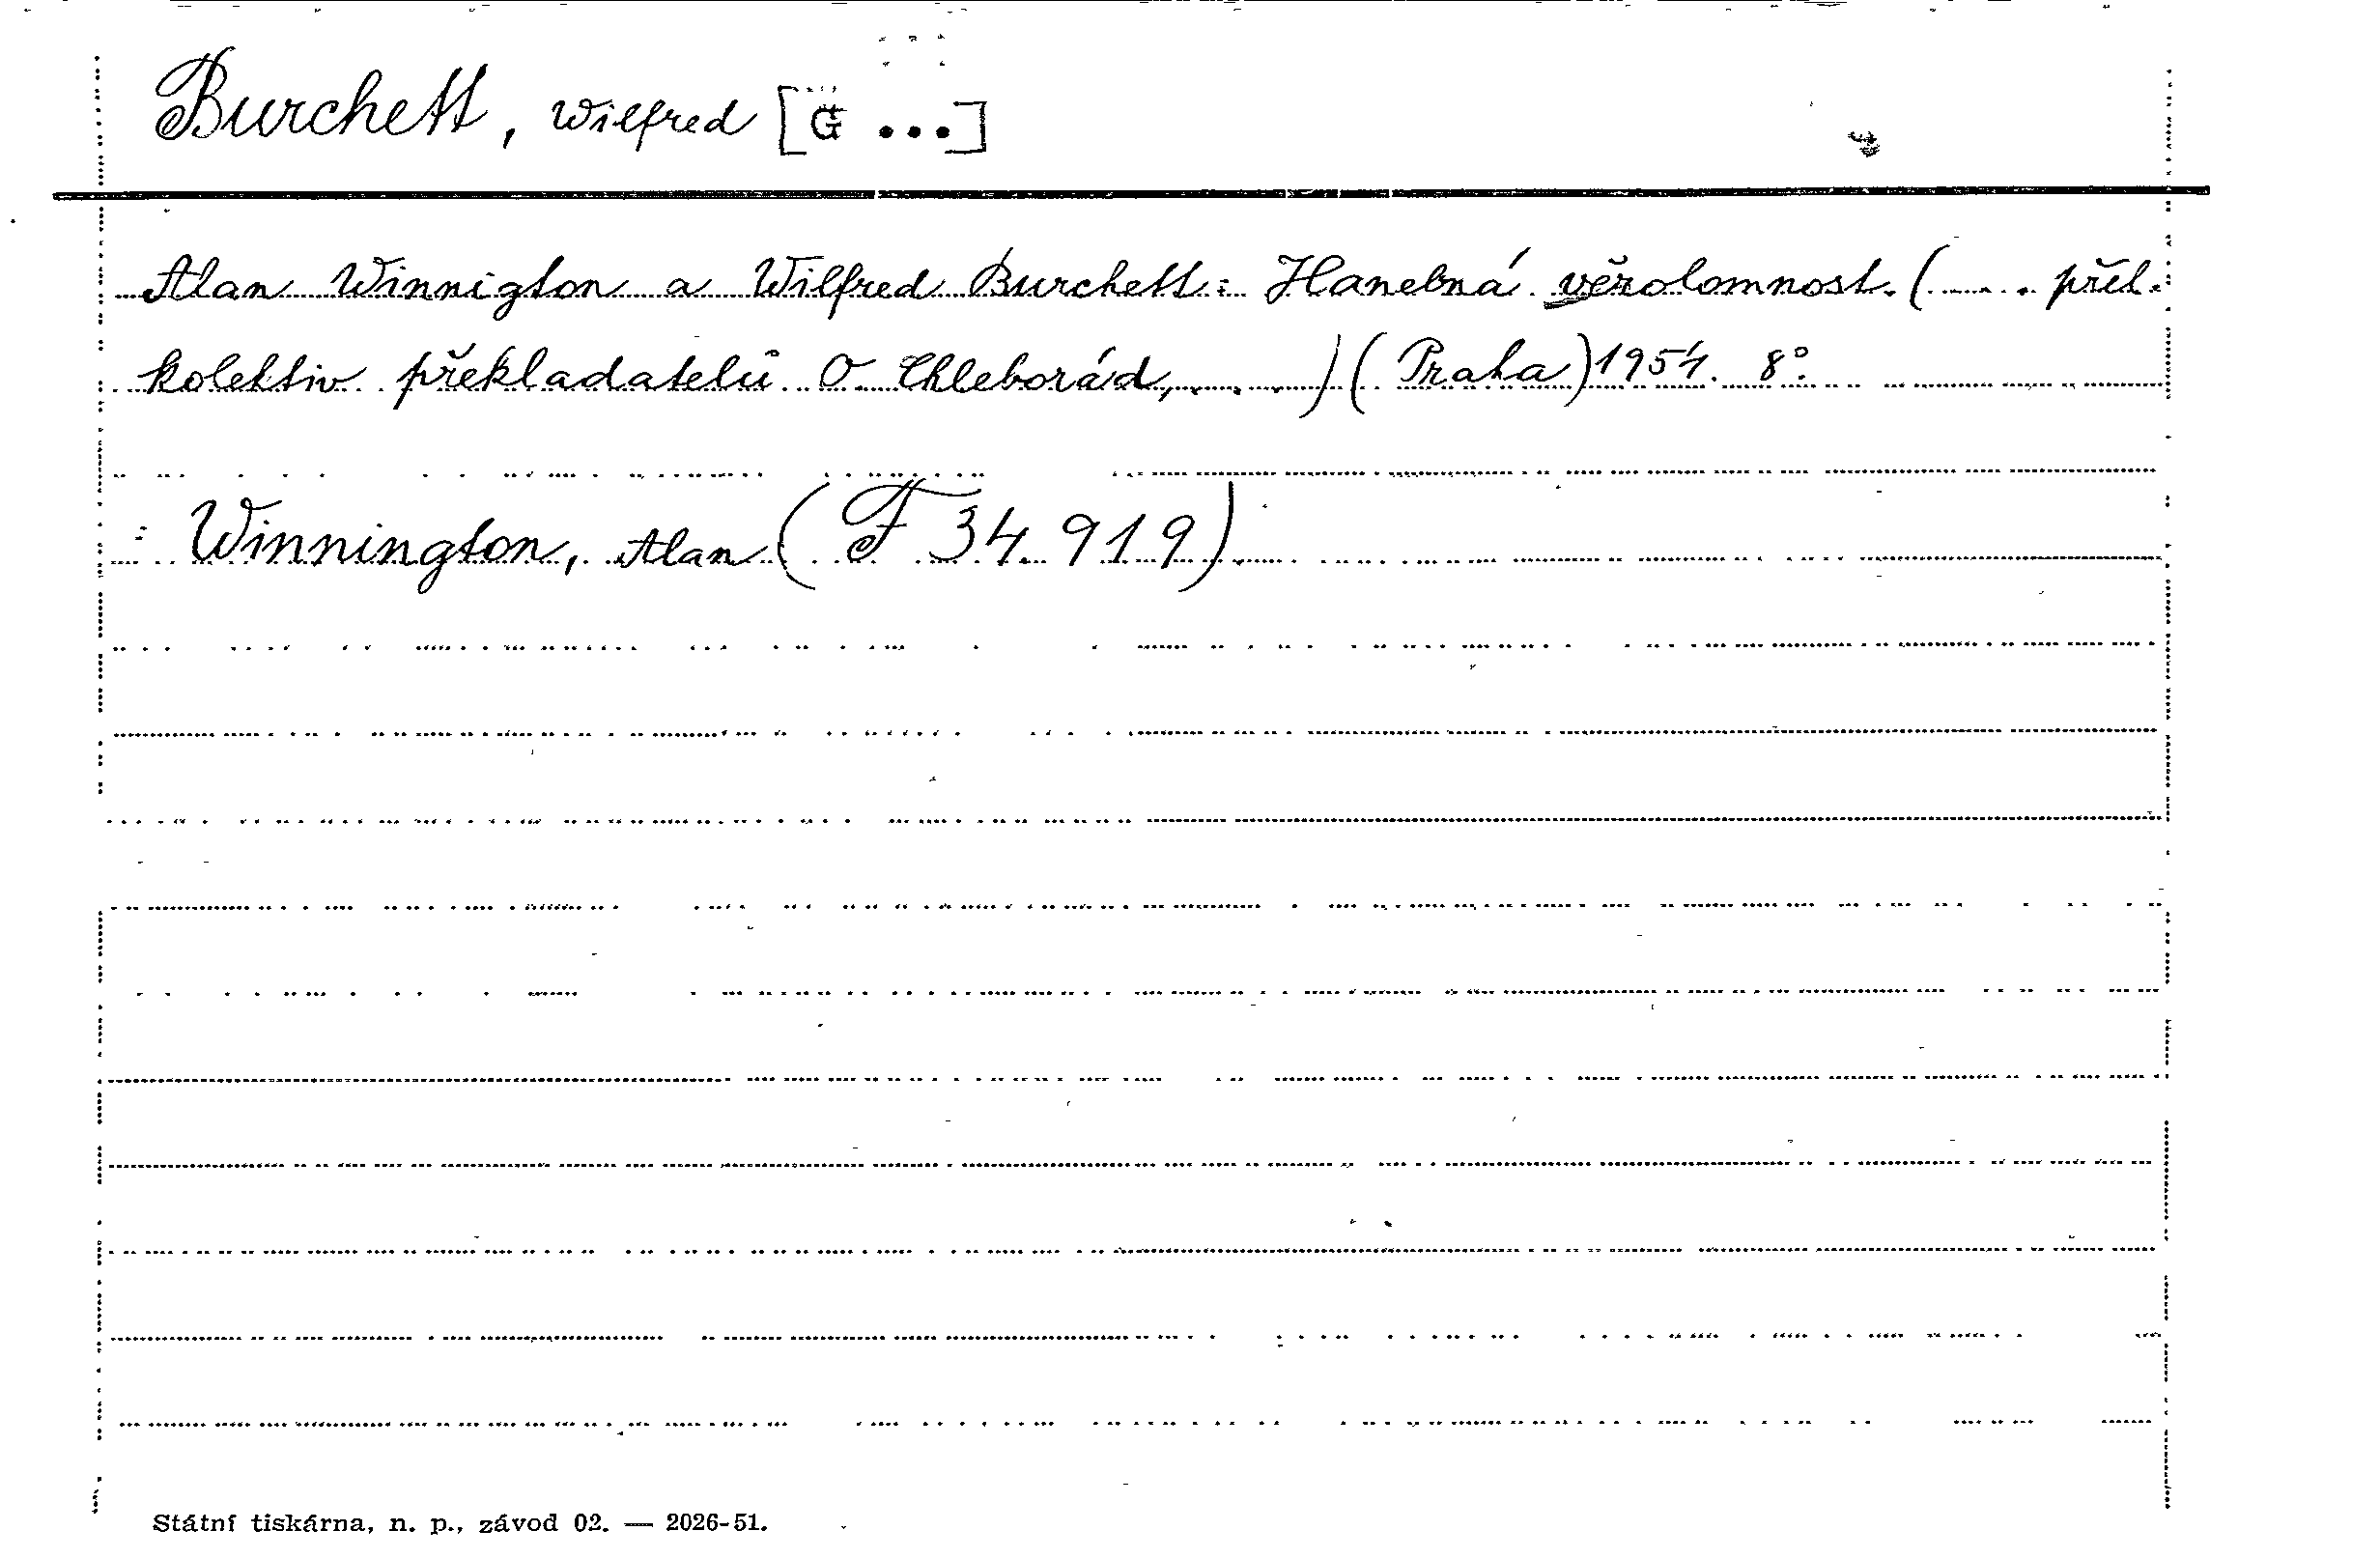 Burchett, Wilfred [G ...]
Alan Winnigton a Wilfred Burchett: Hanebná věrolomnost. (... přel.
kolektiv překladatelů O. Chleborád, ...) (Praha) 1954. 8°.
: Winnington, Alan (F 34.919)
Státní tiskárna, n. p., závod 02. — 2026-51.